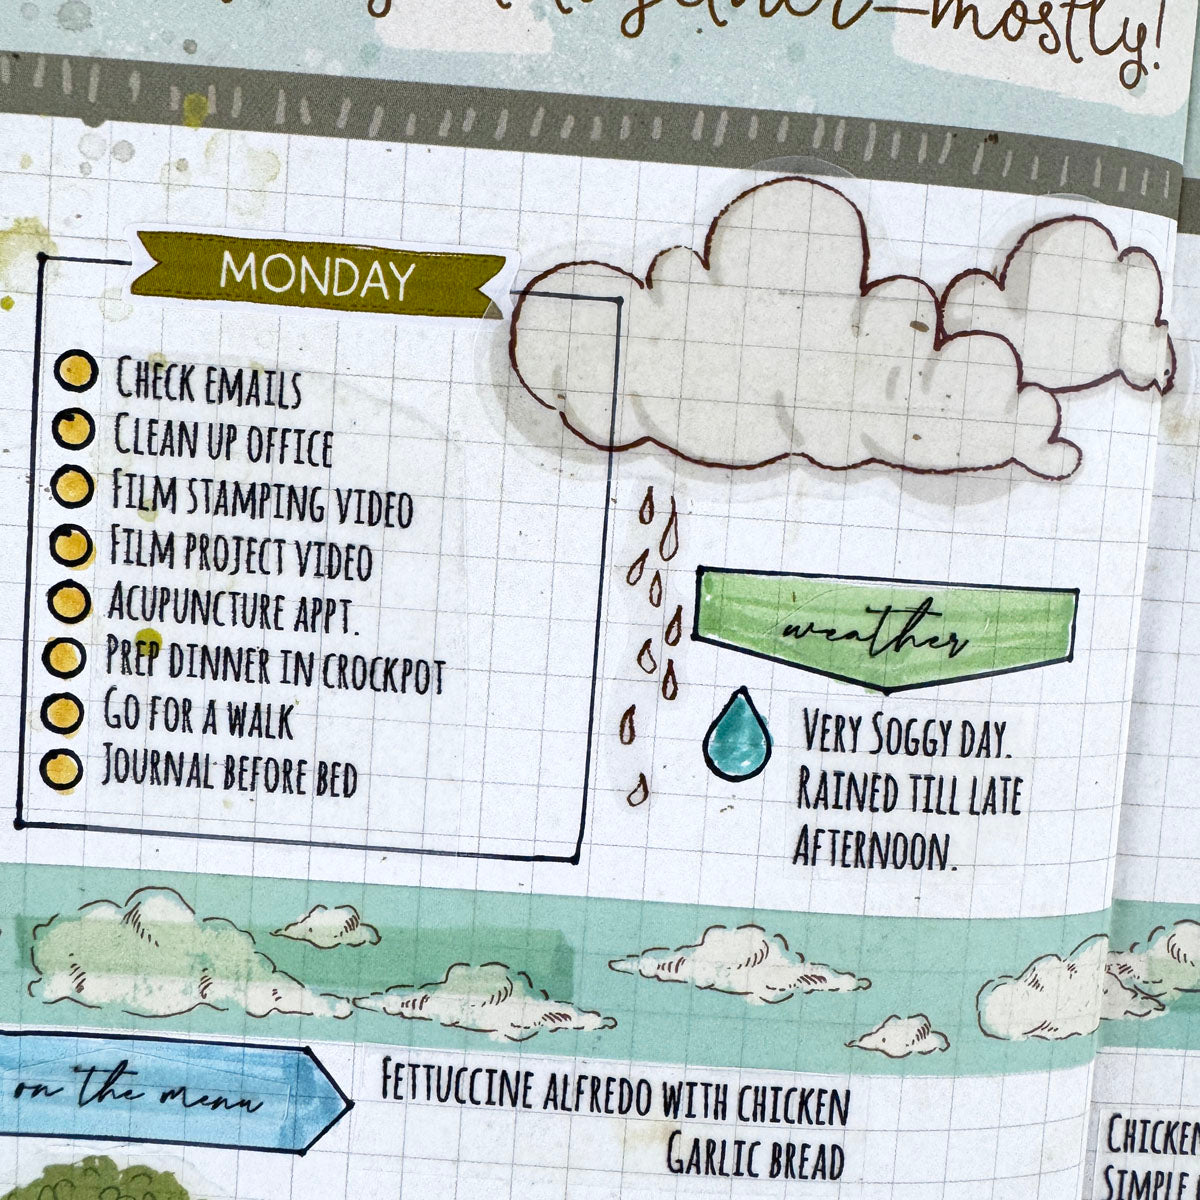 together—mostly!
MONDAY
CHECK EMAILS
CLEAN UP OFFICE
FILM STAMPING VIDEO
FILM PROJECT VIDEO
ACUPUNCTURE APPT.
PREP DINNER IN CROCKPOT
GO FOR A WALK
JOURNAL BEFORE BED
weather
VERY SOGGY DAY.
RAINED TILL LATE
AFTERNOON.
on the menu
FETTUCCINE ALFREDO WITH CHICKEN
GARLIC BREAD
CHICKEN
SIMPLE